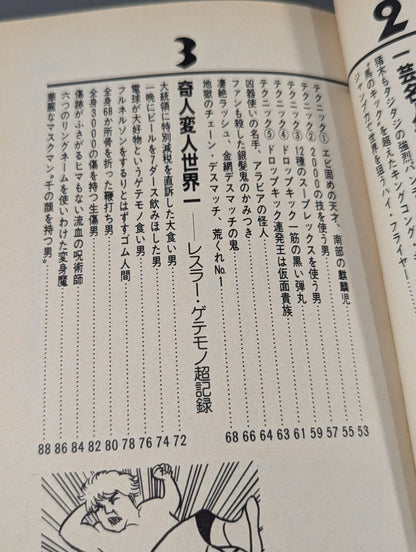 2
一芸名人
猪木もタジタジの強烈パン
"馬のキック"を超えたキングコング
ジャンプ力で世界を狙うハイ・フライヤ
テクニック① エビ固めの天才、南部の麒麟児 53
テクニック② 2000の技を使う男 55
テクニック③ 12種のスープレックスを使う男 57
テクニック④ ドロップキック一筋の黒い弾丸 59
テクニック⑤ ドロップキック連発王は仮面貴族 61
凶器使いの名手、アラビアの怪人 63
ファンも殺した銀髪鬼のかみつき 64
凄絶ラッシュ、金網デスマッチの鬼 66
地獄のチェーン・デスマッチ、荒くれNo.1 68
3
奇人変人世界一──レスラー・ゲテモノ超記録
大統領に特別減税を直訴した大食い男 72
一晩にビールを7ダース飲みほした男 74
電球が大好物というゲテモノ食い男 76
フルネルソンをするりとはずすゴム人間 78
全身68か所骨を折った鞭打ち男 80
全身3000の傷を持つ生傷男 82
傷跡がふさがるヒマもない流血の呪術師 84
六つのリングネームを使いわけた変身魔 86
華麗なマスクマン"千の顔を持つ男" 88